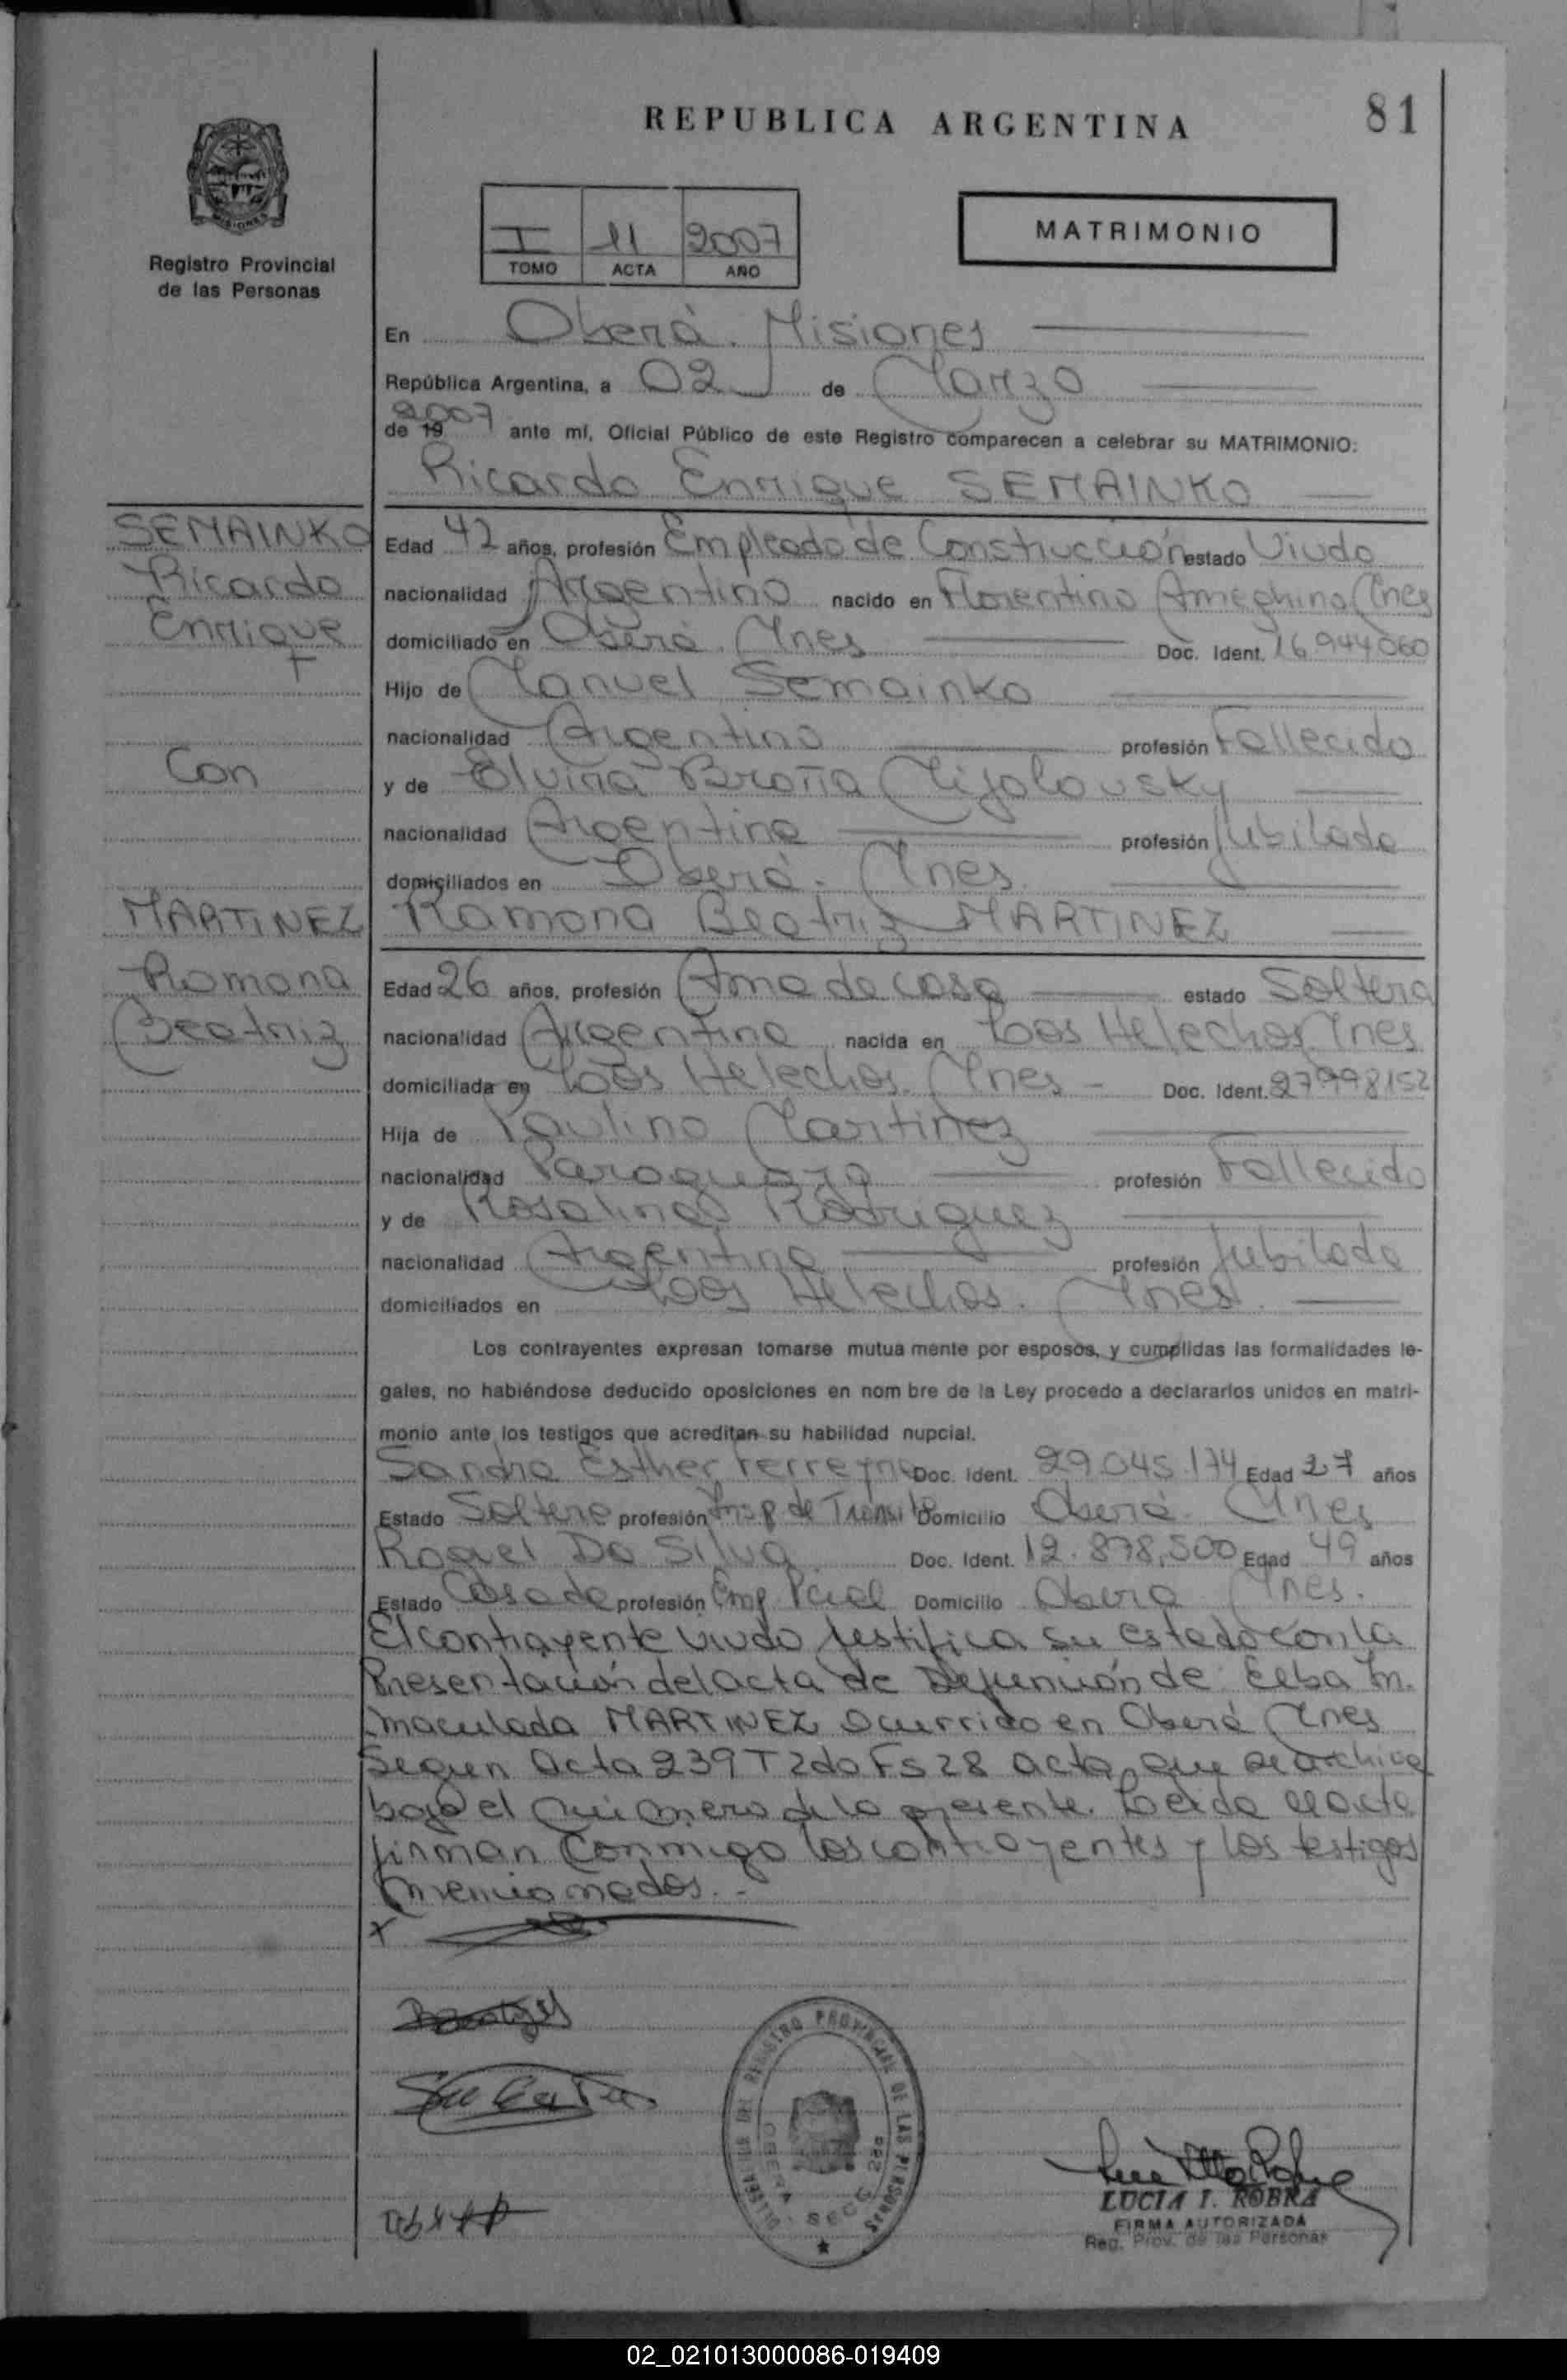 REPUBLICA ARGENTINA
81
MISIONES
Registro Provincial
de las Personas
I 11 2007
TOMO ACTA AÑO
MATRIMONIO
En Oberá. Misiones
República Argentina, a 02 de Marzo
de 19 2007 ante mí, Oficial Público de este Registro comparecen a celebrar su MATRIMONIO:
Ricardo Enrique SEMAINKO
SEMAINKO
Ricardo
Enrique
Con
MARTINEZ
Ramona
Beatriz
Edad 42 años, profesión Empleado de Construcción estado Viudo
nacionalidad Argentino nacido en Florentino Ameghino Mnes
domiciliado en Oberá. Mnes Doc. Ident. 16.944.060
Hijo de Manuel Semainko
nacionalidad Argentino profesión Fallecido
y de Elvira
nacionalidad Argentina profesión Jubilada
domiciliados en Oberá. Mnes.
Ramona Beatriz MARTINEZ
Edad 26 años, profesión Ama de casa estado Soltera
nacionalidad Argentina nacida en Los Helechos Mnes
domiciliada en Los Helechos. Mnes Doc. Ident. 27998152
Hija de Paulino Martinez
nacionalidad Paraguaya profesión Fallecido
y de Rosalina Rodriguez
nacionalidad Argentina profesión Jubilada
domiciliados en Los Helechos. Mnes.
Los contrayentes expresan tomarse mutua mente por esposos, y cumplidas las formalidades le-
gales, no habiéndose deducido oposiciones en nom bre de la Ley procedo a declararlos unidos en matri-
monio ante los testigos que acreditan su habilidad nupcial.
Sandra Esther Ferreyra Doc. Ident. 29.045.174 Edad 27 años
Estado Soltera profesión Insp. de Transito Domicilio Oberá. Mnes
Raquel Da Silva Doc. Ident. 12.878.500 Edad 49 años
Estado Casada profesión Emp. Pcial Domicilio Oberá Mnes.
El contrayente viudo justifica su estado con la
Presentación del acta de Defunción de Elba In-
maculada MARTINEZ Ocurrido en Oberá Mnes
Segun Acta 239 T 2do Fs 28 acta que se archiva
bajo el número de la presente. Leida el acta
firman Conmigo los contrayentes y los testigos
mencionados. -
x
DELEGACION DEL REGISTRO PROVINCIAL DE LAS PERSONAS
OBERA SECC. 2da
LUCIA I. ROBRA
FIRMA AUTORIZADA
Reg. Prov. de las Personas
02_021013000086-019409